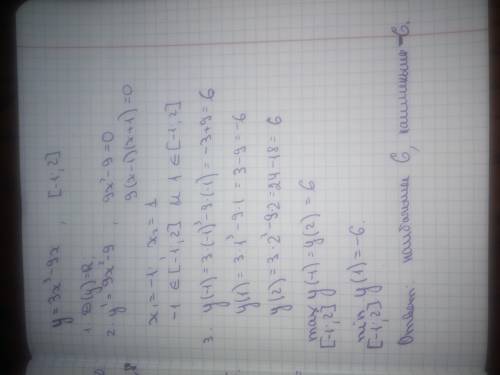 y = 3x³-9x , [-1, 2]
1. D(y)=R
2. y' = 9x²-9 , 9x²-9 = 0
9(x-1)(x+1)=0
x₁=-1 x₂=1
-1 ∈ [-1, 2] и 1 ∈ [-1, 2]
3. y(-1) = 3·(-1)³-9·(-1) = -3+9 = 6
y(1) = 3·1³-9·1 = 3-9 = -6
y(2) = 3·2³-9·2 = 24-18 = 6
max y(-1) = y(2) = 6
[-1; 2]
min y(1) = -6.
[-1; 2]
Ответ: наибольшее 6, наименьшее -6.